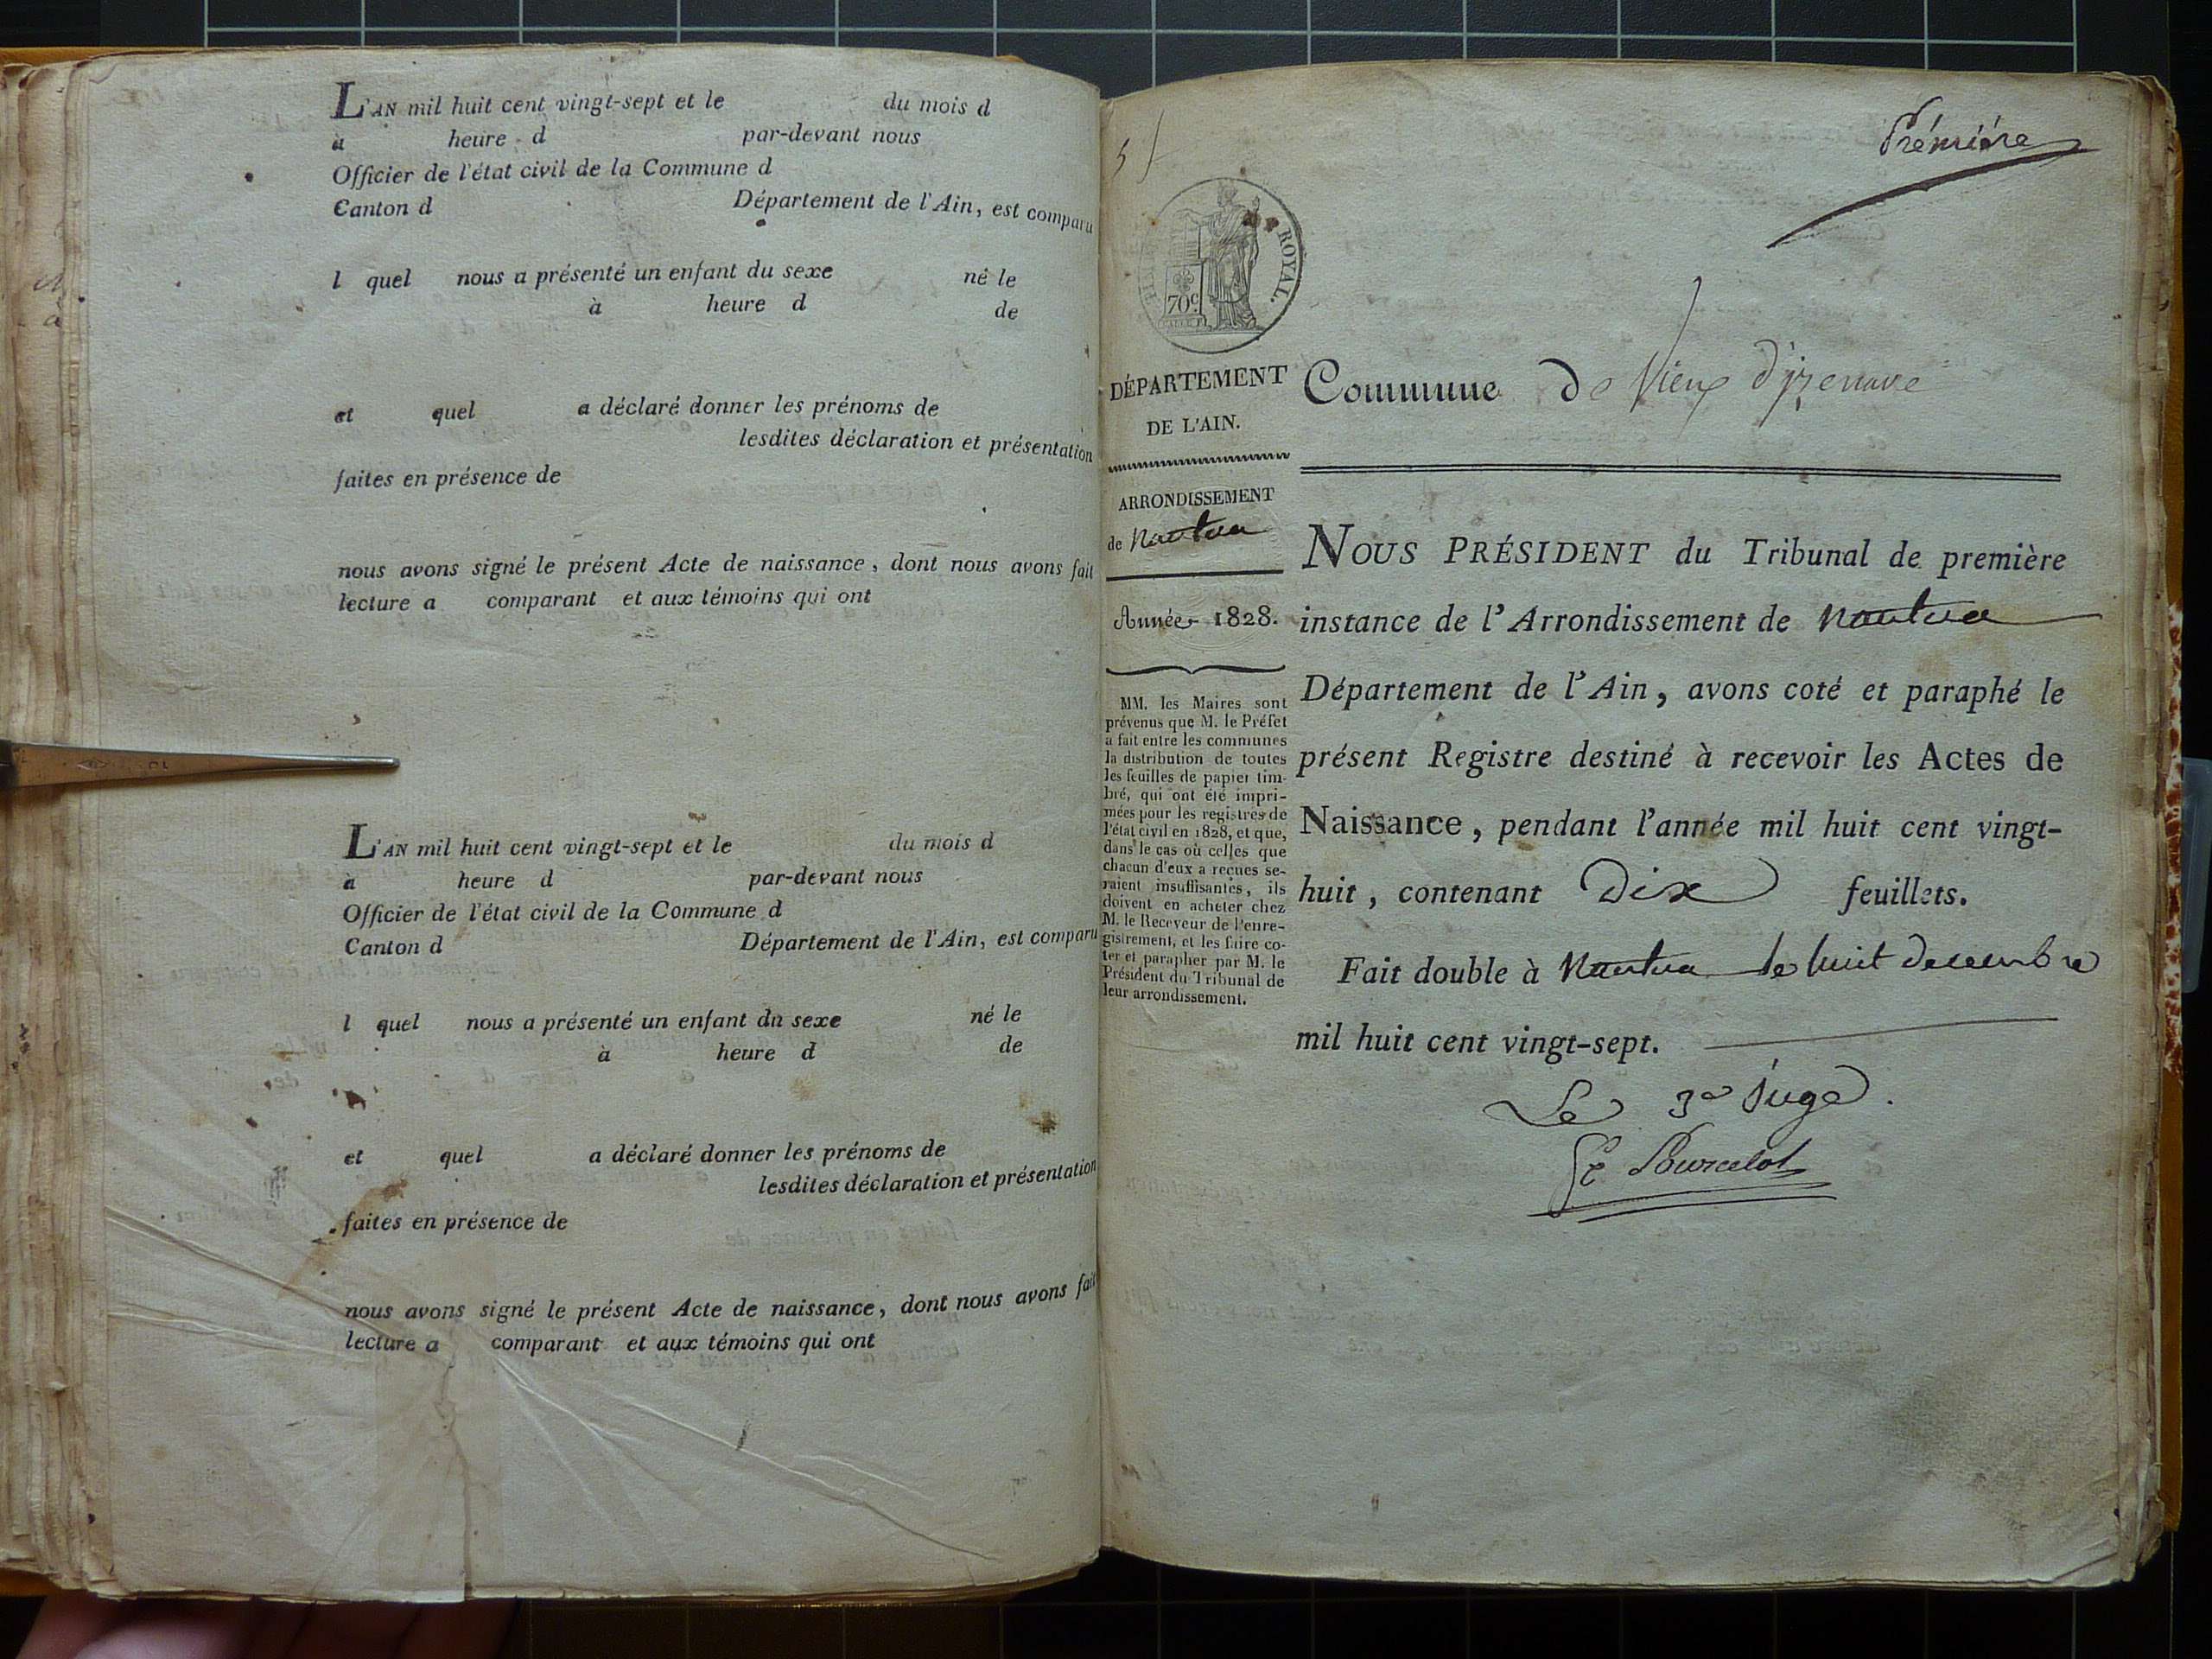 L'AN mil huit cent vingt-sept et le du mois d
à heure d par-devant nous
Officier de l'état civil de la Commune d
Canton d Département de l'Ain, est comparu
l quel nous a présenté un enfant du sexe né le
à heure d de
et quel a déclaré donner les prénoms de
lesdites déclaration et présentation
faites en présence de
nous avons signé le présent Acte de naissance, dont nous avons fait
lecture a comparant et aux témoins qui ont
L'AN mil huit cent vingt-sept et le du mois d
à heure d par-devant nous
Officier de l'état civil de la Commune d
Canton d Département de l'Ain, est comparu
l quel nous a présenté un enfant du sexe né le
à heure d de
et quel a déclaré donner les prénoms de
lesdites déclaration et présentation
faites en présence de
nous avons signé le présent Acte de naissance, dont nous avons fait
lecture a comparant et aux témoins qui ont
Prémiére
ROYAL.
70c.
DÉPARTEMENT
DE L'AIN.
ARRONDISSEMENT
de Nantua
Année 1828.
MM. les Maires sont
prévenus que M. le Préfet
a fait entre les communes
la distribution de toutes
les feuilles de papier tim-
bré, qui ont été impri-
mées pour les registres de
l'état civil en 1828, et que,
dans le cas où celles que
chacun d'eux a reçues se-
raient insuffisantes, ils
doivent en acheter chez
M. le Receveur de l'enre-
gistrement, et les faire co-
ter et parapher par M. le
Président du Tribunal de
leur arrondissement.
Commune de Vieux d'izenave
NOUS PRÉSIDENT du Tribunal de première
instance de l'Arrondissement de Nantua
Département de l'Ain, avons coté et paraphé le
présent Registre destiné à recevoir les Actes de
Naissance, pendant l'année mil huit cent vingt-
huit, contenant Dix feuillets.
Fait double à Nantua le huit decembre
mil huit cent vingt-sept.
Le 3e Juge.